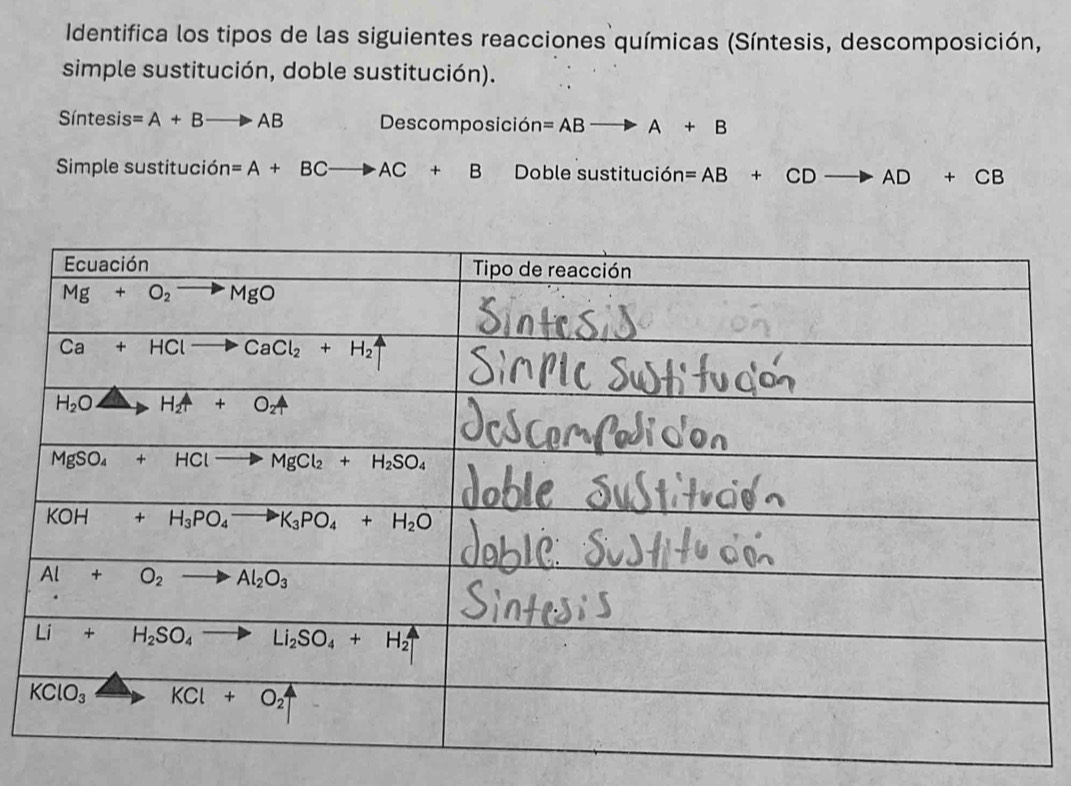 Identifica los tipos de las siguientes reacciones químicas (Síntesis, descomposición,
simple sustitución, doble sustitución).
Síntesis= A + B → AB Descomposición= AB → A + B
Simple sustitución= A + BC → AC + B Doble sustitución= AB + CD → AD + CB
Ecuación Tipo de reacción
Mg + O₂ → MgO Sintesis
Ca + HCl → CaCl₂ + H₂↑ Simple Sustitución
H₂O ▲→ H₂↑ + O₂↑ descomposición
MgSO₄ + HCl → MgCl₂ + H₂SO₄ doble sustitución
KOH + H₃PO₄ → K₃PO₄ + H₂O doble sustitución
Al + O₂ → Al₂O₃ Sintesis
Li + H₂SO₄ → Li₂SO₄ + H₂↑
KClO₃ ▲→ KCl + O₂↑